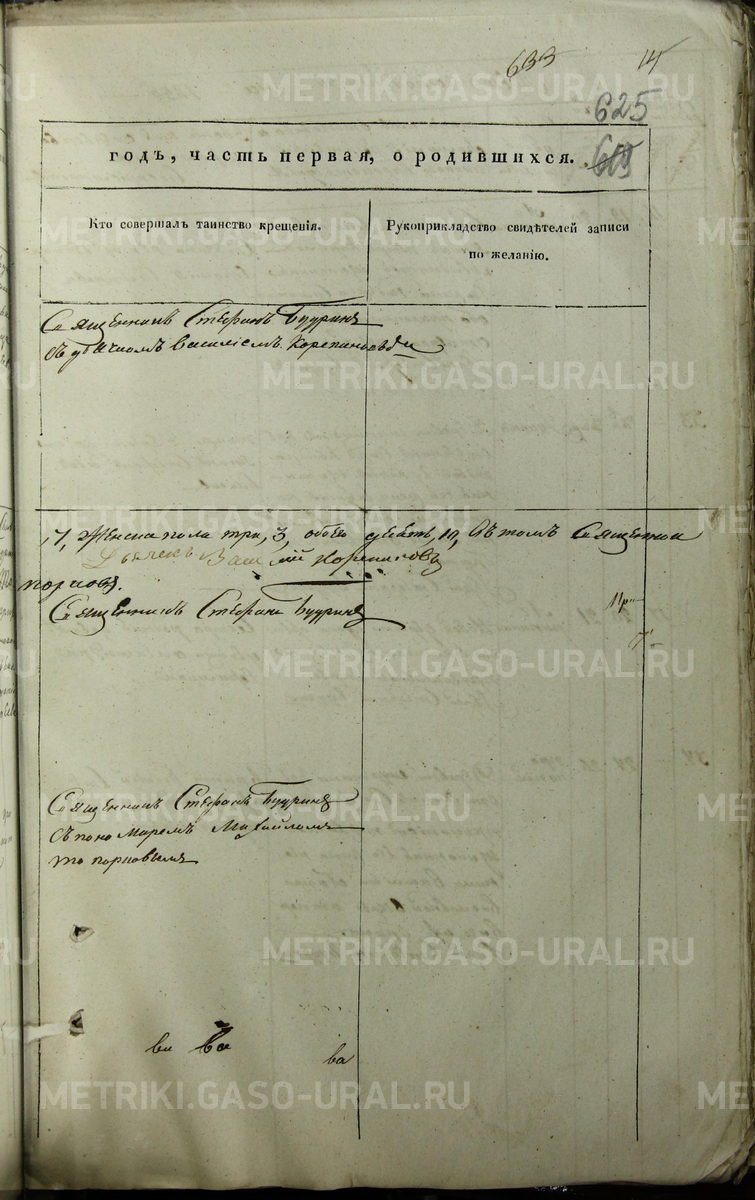 633 14
625
619
годъ, часть первая, о родившихся.
Кто совершалъ таинство крещенія.
Рукоприкладство свидѣтелей записи
по желанію.
Священникъ Стефанъ Бууринъ
съ дьячкомъ Василіемъ
7, Женска пола три, 3, обоего десять, 10, въ томъ Священник
Дьячекъ Василій Корепановъ
Священникъ Стефанъ Бууринъ
Священникъ Стефанъ Бууринъ
съ пономаремъ Михайломъ
Топорковымъ
ва ва ва
METRIKI.GASO-URAL.RU